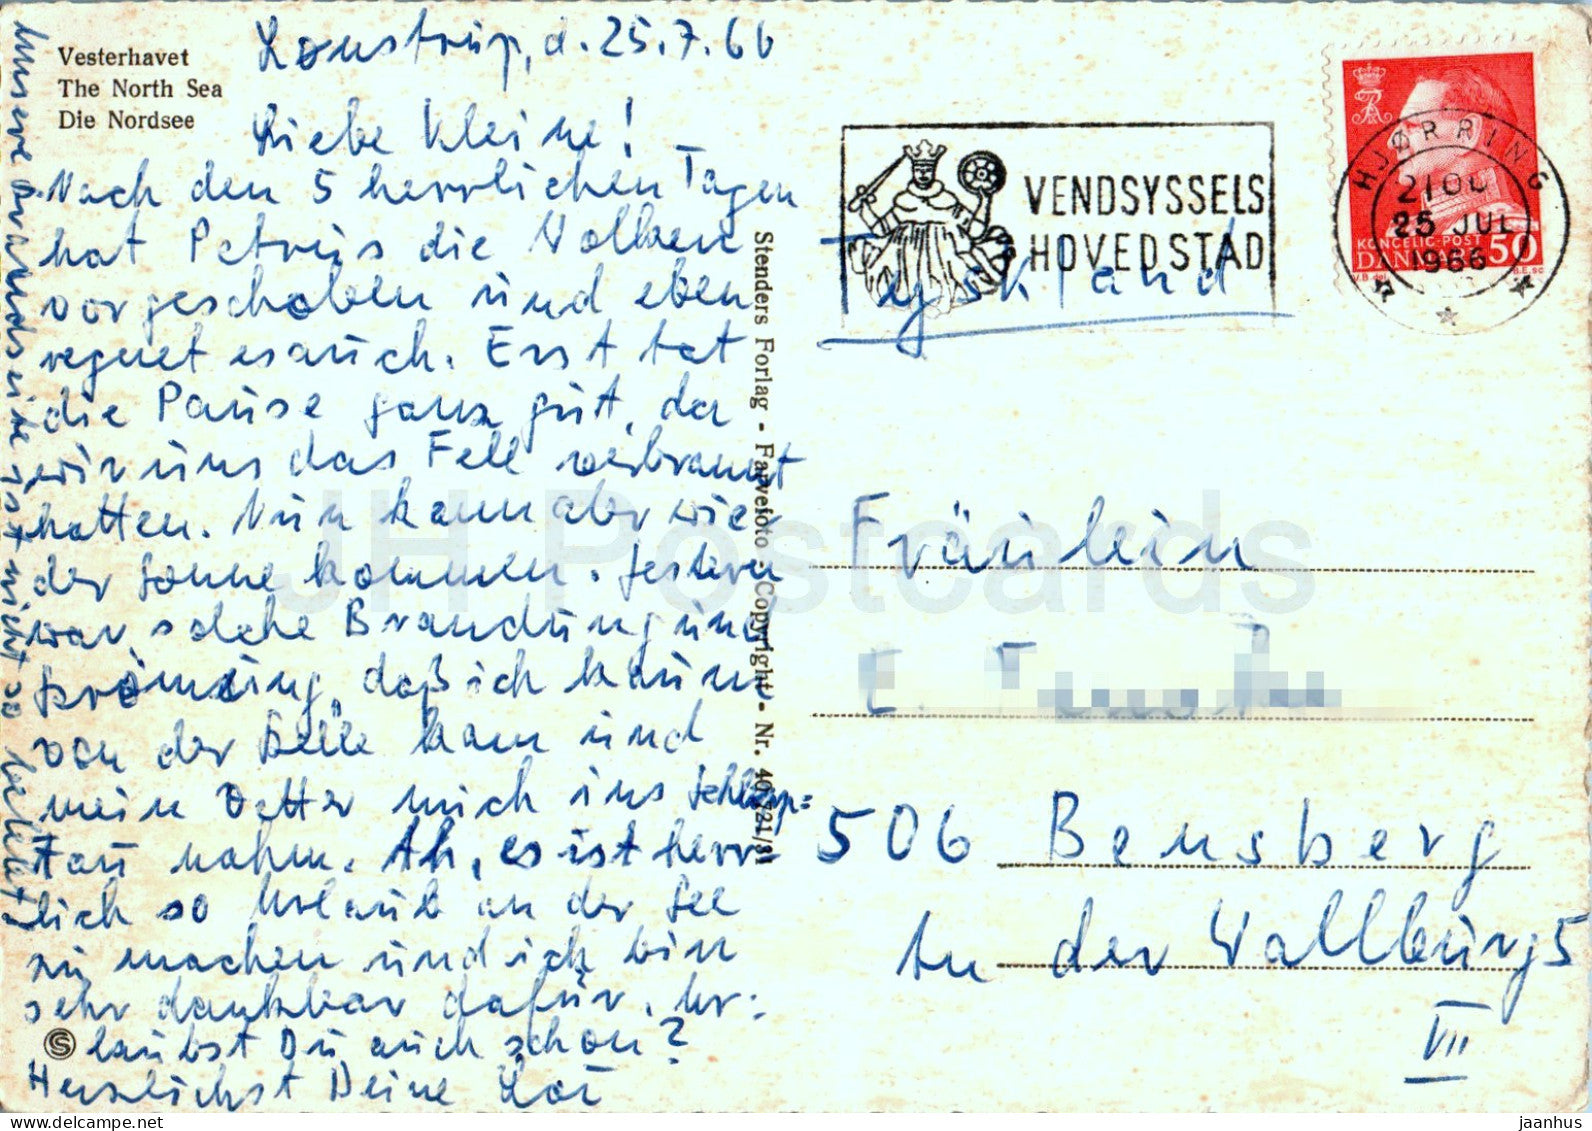 Vesterhavet
The North Sea
Die Nordsee
Lønstrup, d. 25.7.66
Liebe Kleine!
Nach den 5 herrlichen Tagen
hat Petrus die Wolken
vorgeschoben und eben
regnet es auch. Erst tat
die Pause ganz gut, da
wir uns das Fell verbrannt
hatten. Nun kann aber wie
der Sonne kommen. Gestern
war solche Brandung und
Strömung, daß ich kaum
von der Stelle kam und
mein Vetter mich ins Schlepp=
tau nahm. Ah, es ist herr-
lich so Urlaub an der See
zu machen und ich bin
sehr dankbar dafür. Ur:
laubst Du auch schon?
Herzlichst Deine Lou
unsere Strandseite ist nicht so belebt!
Stenders Forlag - Farvefoto - Copyright - Nr. 40 721/81
S
VENDSYSSELS
HOVEDSTAD
HJØRRING
25 JUL
1966
KONGELIG-POST
DANMARK 50
V.B. del.
B.E. sc
Tyskland
Fräulein
E.
506 Bensberg
An der Wallburg 5
VII
JH Postcards
delcampe.net
jaanhus